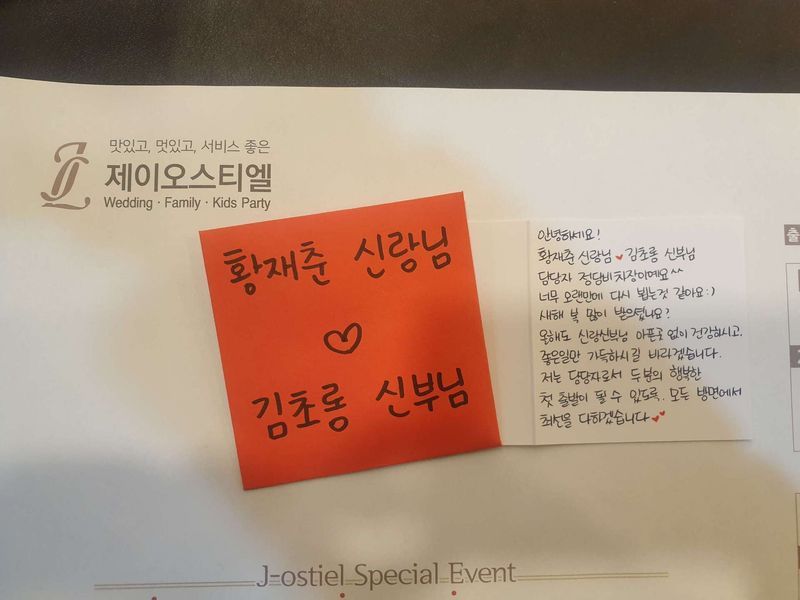 맛있고, 멋있고, 서비스 좋은
제이오스티엘
Wedding · Family · Kids Party
황재춘 신랑님
♡
김초롱 신부님
안녕하세요!
황재춘 신랑님 ♥ 김초롱 신부님
담당자 정담비차장이예요^^
너무 오랜만에 다시 뵙는것 같아요:)
새해 복 많이 받으셨나요?
올해도 신랑신부님 아픈곳 없이 건강하시고,
좋은일만 가득하시길 바라겠습니다.
저는 담당자로서 두분의 행복한
첫 출발이 될 수 있도록, 모든 방면에서
최선을 다하겠습니다♥♥
J-ostiel Special Event